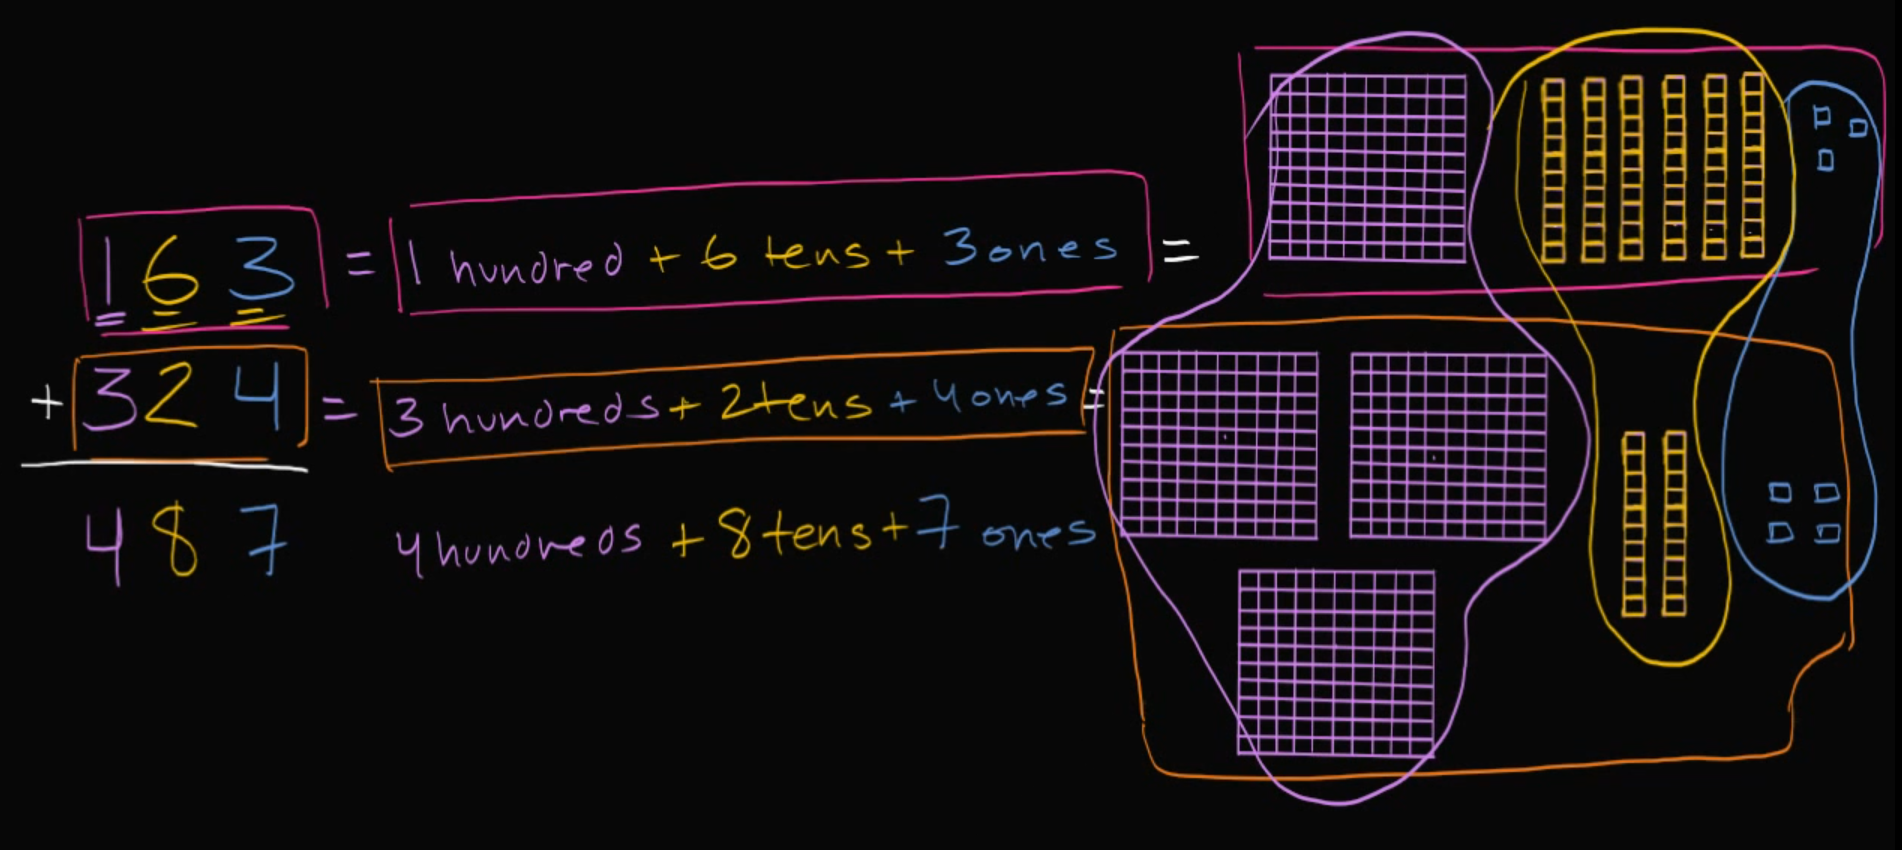 163 = 1 hundred + 6 tens + 3 ones =
+ 324 = 3 hundreds + 2 tens + 4 ones =
487 4 hundreds + 8 tens + 7 ones